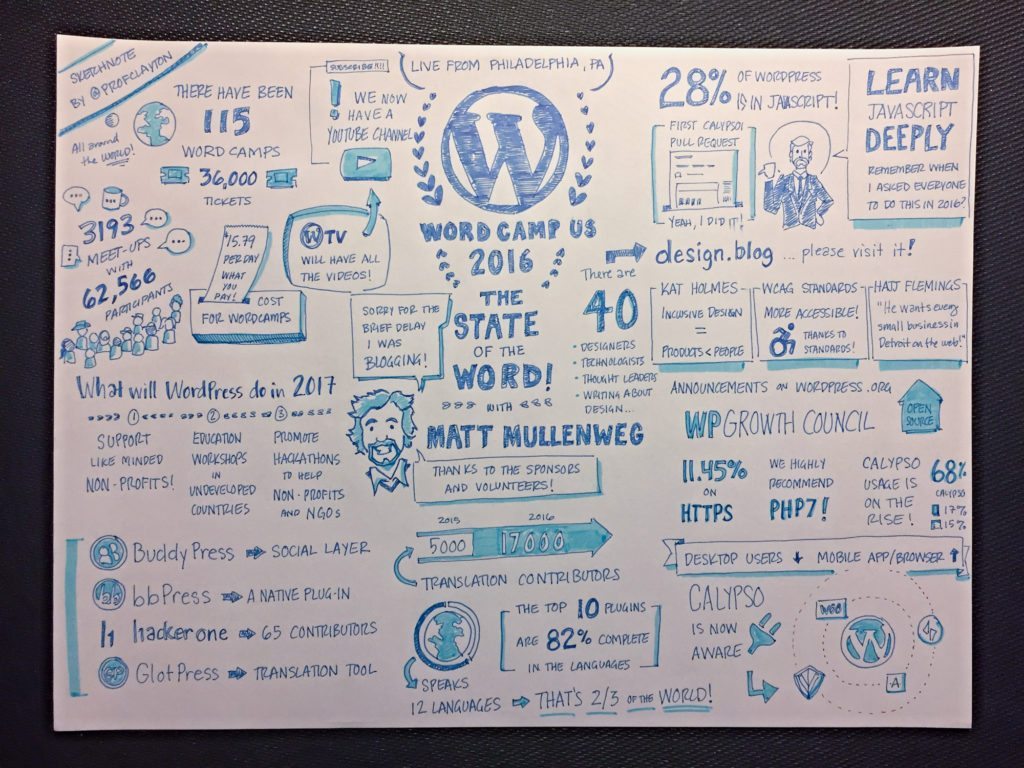 SKETCHNOTE
BY @PROFCLAYTON
All around
the WORLD!
THERE HAVE BEEN
115
WORD CAMPS
36,000
TICKETS
3193
MEET-UPS
WITH
62,566
PARTICIPANTS
$15.79
PER DAY
WHAT
YOU
PAY!
COST
FOR WORDCAMPS
SUBSCRIBE!!!!
! WE NOW
HAVE A
YOUTUBE CHANNEL
W TV
WILL HAVE ALL
THE VIDEOS!
LIVE FROM PHILADELPHIA, PA
W
WORD CAMP US
2016
THE
STATE
OF THE
WORD!
WITH
MATT MULLENWEG
SORRY FOR THE
BRIEF DELAY
I WAS
BLOGGING!
THANKS TO THE SPONSORS
AND VOLUNTEERS!
28% OF WORDPRESS
IS IN JAVASCRIPT!
FIRST CALYPSO!
PULL REQUEST
YEAH, I DID IT!
LEARN
JAVASCRIPT
DEEPLY
REMEMBER WHEN
I ASKED EVERYONE
TO DO THIS IN 2016?
design.blog ... please visit it!
There are
40
• DESIGNERS
• TECHNOLOGISTS
• THOUGHT LEADERS
• WRITING ABOUT
DESIGN...
KAT HOLMES-
INCLUSIVE DESIGN
=
PRODUCTS < PEOPLE
WCAG STANDARDS
MORE ACCESSIBLE!
THANKS TO
STANDARDS!
HAJJ FLEMINGS
"He wants every
small business in
Detroit on the web!"
What will WordPress do in 2017
1 2 3
SUPPORT
LIKE MINDED
NON-PROFITS!
EDUCATION
WORKSHOPS
IN
UNDEVELOPED
COUNTRIES
PROMOTE
HACKATHONS
TO HELP
NON-PROFITS
AND NGOs
ANNOUNCEMENTS ON WORDPRESS.ORG
WP GROWTH COUNCIL
OPEN
SOURCE
11.45%
ON
HTTPS
WE HIGHLY
RECOMMEND
PHP7!
CALYPSO
USAGE IS
ON THE
RISE!
68%
CALYPSO
17%
15%
BuddyPress ⇒ SOCIAL LAYER
bbPress ⇒ A NATIVE PLUG-IN
hackerone ⇒ 65 CONTRIBUTORS
GlotPress ⇒ TRANSLATION TOOL
2015 2016
5000 17000
TRANSLATION CONTRIBUTORS
THE TOP 10 PLUGINS
ARE 82% COMPLETE
IN THE LANGUAGES
SPEAKS
12 LANGUAGES ⇒ THAT'S 2/3 OF THE WORLD!
DESKTOP USERS ↓ MOBILE APP/BROWSER ↑
CALYPSO
IS NOW
AWARE
WOO
W
A